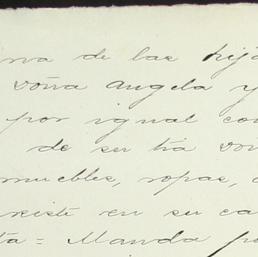 na de las hija
Doña Angela y
por igual con
de su tia Do
muebles, ropas,
xiste en su ca
ta = Manda